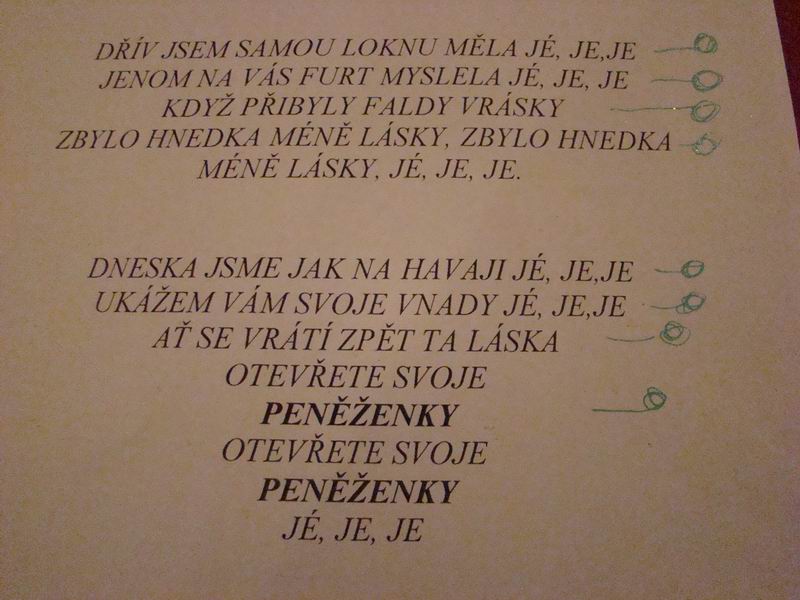 DŘÍV JSEM SAMOU LOKNU MĚLA JÉ, JE,JE
JENOM NA VÁS FURT MYSLELA JÉ, JE, JE
KDYŽ PŘIBYLY FALDY VRÁSKY
ZBYLO HNEDKA MÉNĚ LÁSKY, ZBYLO HNEDKA
MÉNĚ LÁSKY, JÉ, JE, JE.
DNESKA JSME JAK NA HAVAJI JÉ, JE,JE
UKÁŽEM VÁM SVOJE VNADY JÉ, JE,JE
AŤ SE VRÁTÍ ZPĚT TA LÁSKA
OTEVŘETE SVOJE
PENĚŽENKY
OTEVŘETE SVOJE
PENĚŽENKY
JÉ, JE, JE